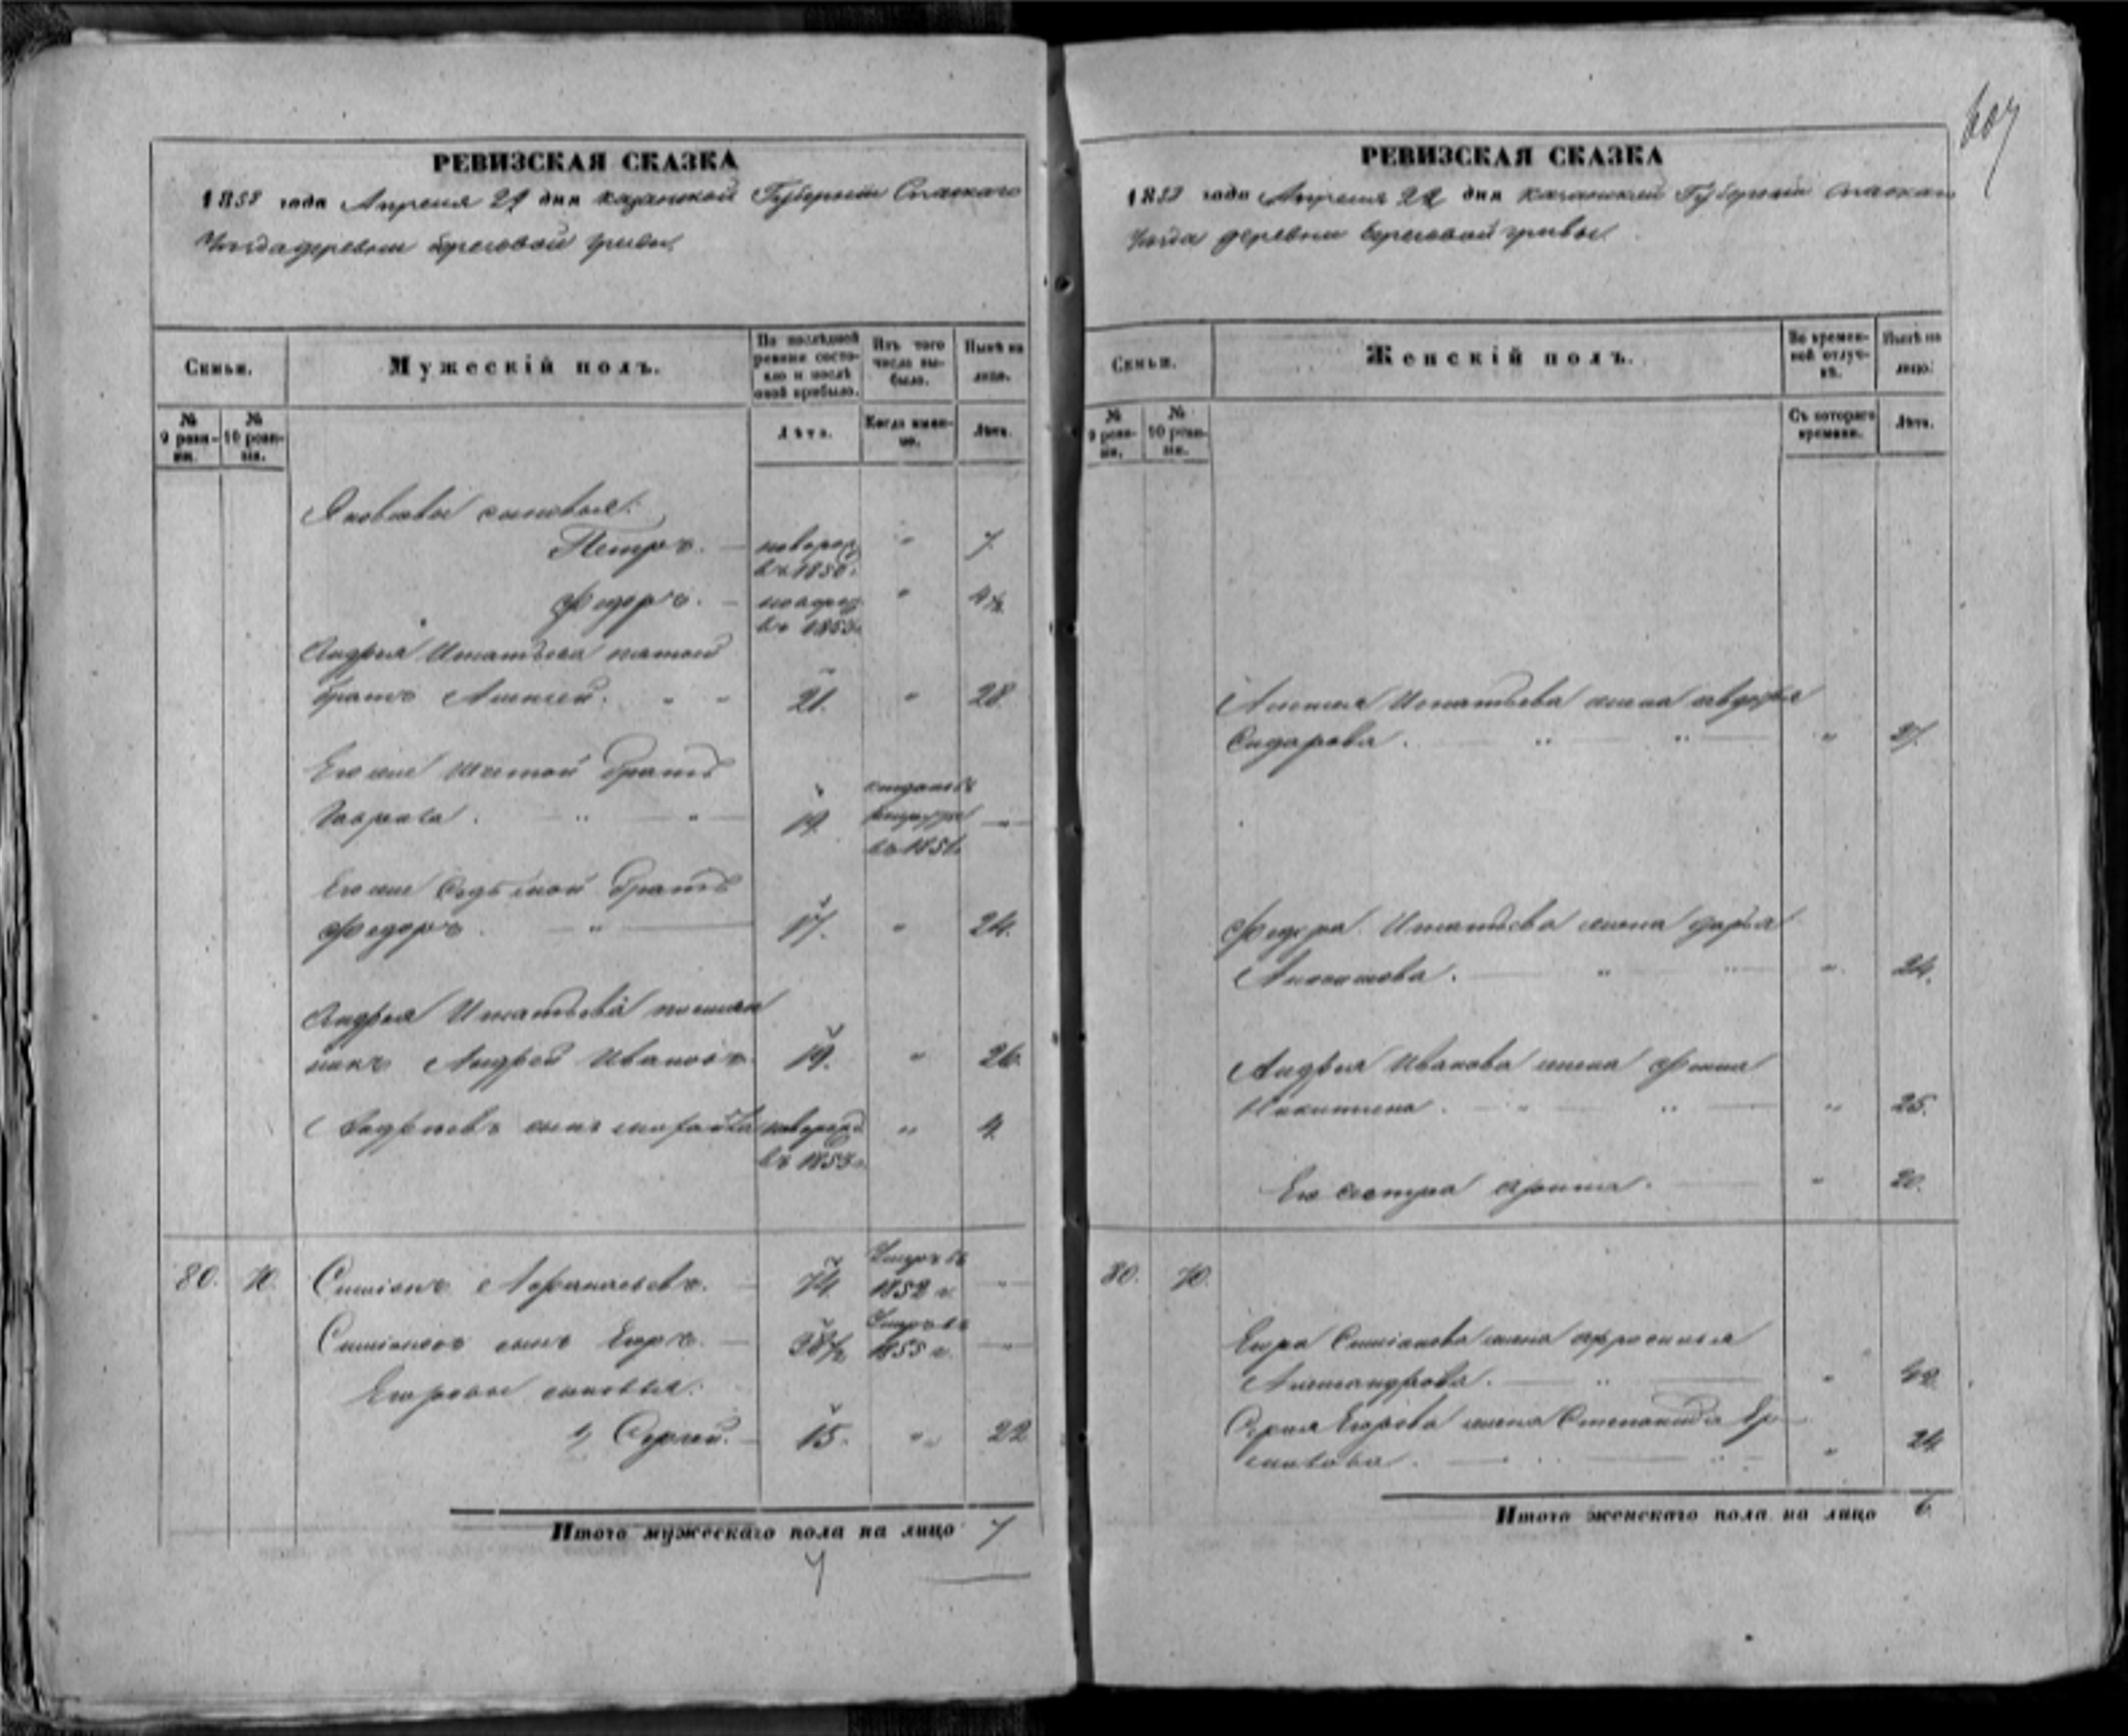 607
РЕВИЗСКАЯ СКАЗКА
1858 года Апреля 21 дня Казанской Губернiи Спаскаго
Уезда деревни Береговой Гривы.
Семьи.
Мужескій полъ.
По послѣдней ревизіи состояло и послѣ оной прибыло.
Изъ того числа выбыло.
Нынѣ на лицо.
№ 9 ревизіи.
№ 10 ревизіи.
Лѣта.
Когда именно.
Лѣта.
Яковлевы сыновья:
Петръ. новорож. въ 1850. " 7
Федоръ. новорож. въ 1853. " 4½
Андрея Игнатьева пятой
братъ Алексей. " " 21. " 28
Его же шестой братъ
19. въ 1851.
Его же Седьмой братъ
Федоръ. " 17. " 24.
Андрея Игнатьева племян
никъ Андрей Ивановъ 19. " 26.
Андреевъ сынъ новорожд. въ 1853 г. " 4.
80. 70. Симионъ Афанасьевъ. 74. Умеръ въ 1852 г. "
Симионовъ сынъ Егоръ. 38½ Умеръ въ 1855 г. "
Егоровы сыновья:
1, Сергей. 15. " 22
Итого мужескаго пола на лицо 7
РЕВИЗСКАЯ СКАЗКА
1858 года Апреля 21 дня Казанской Губернiи Спаскаго
Уезда деревни Береговой Гривы.
Семьи.
Женскій полъ.
Во временной отлучкѣ.
Нынѣ на лицо.
№ 9 ревизіи.
№ 10 ревизіи.
Съ котораго времени.
Лѣта.
Алексея Игнатьева жена Авдотья
Сидорова. " " " 27.
Федора Игнатьева жена Дарья
" " " 24.
Андрея Иванова жена
Никитина. " " " 25.
Его сестра " 20.
80. 70.
Егора Симионова жена Афросинья
Александрова. " "
Сергея Егорова жена Степанида Ер
" 24
Итого женскаго пола на лицо 6